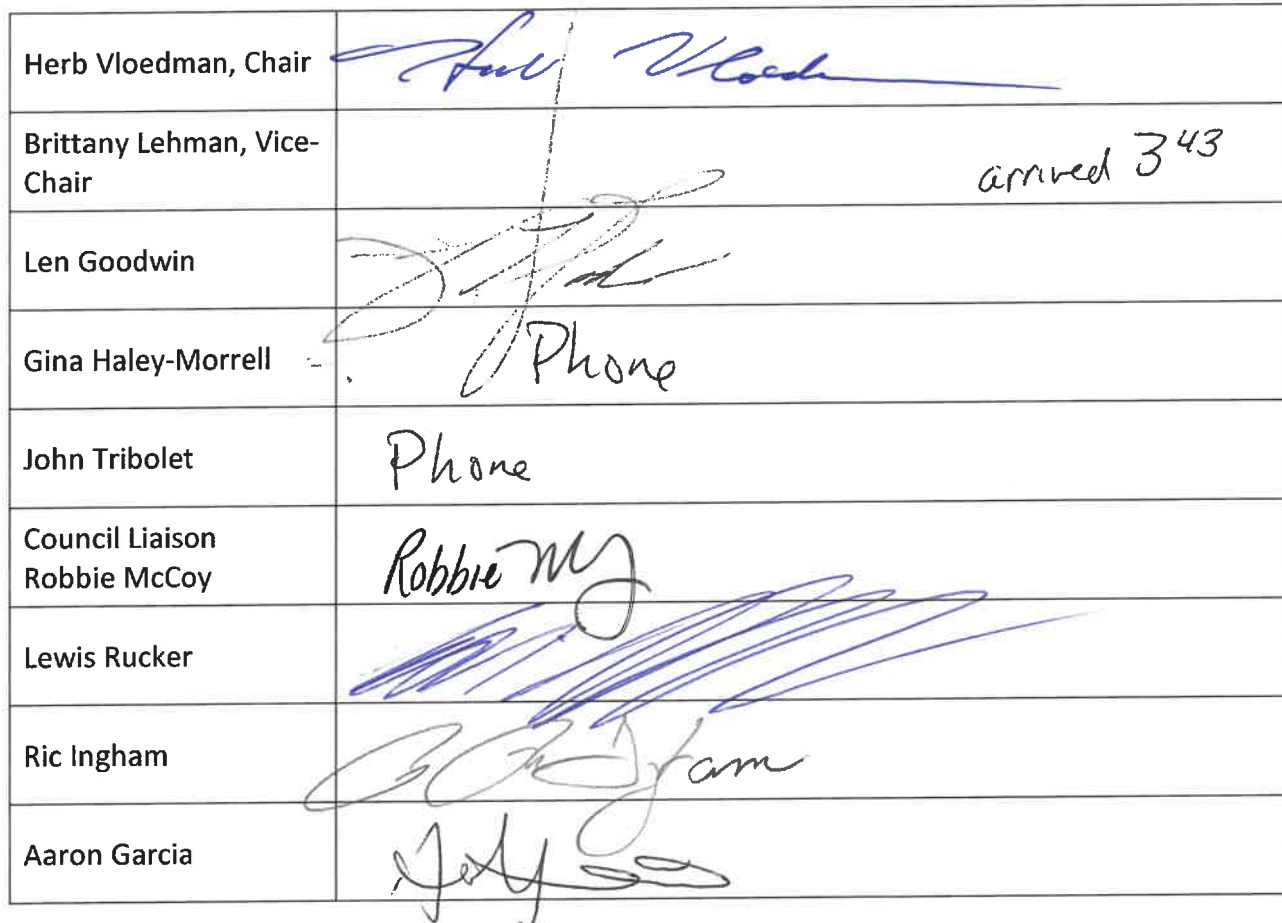 Herb Vloedman, Chair
Herb Vloedm
Brittany Lehman, Vice-
Chair
arrived 3 43
Len Goodwin
Gina Haley-Morrell
Phone
John Tribolet
Phone
Council Liaison
Robbie McCoy
Robbie
Lewis Rucker
Ric Ingham
Aaron Garcia